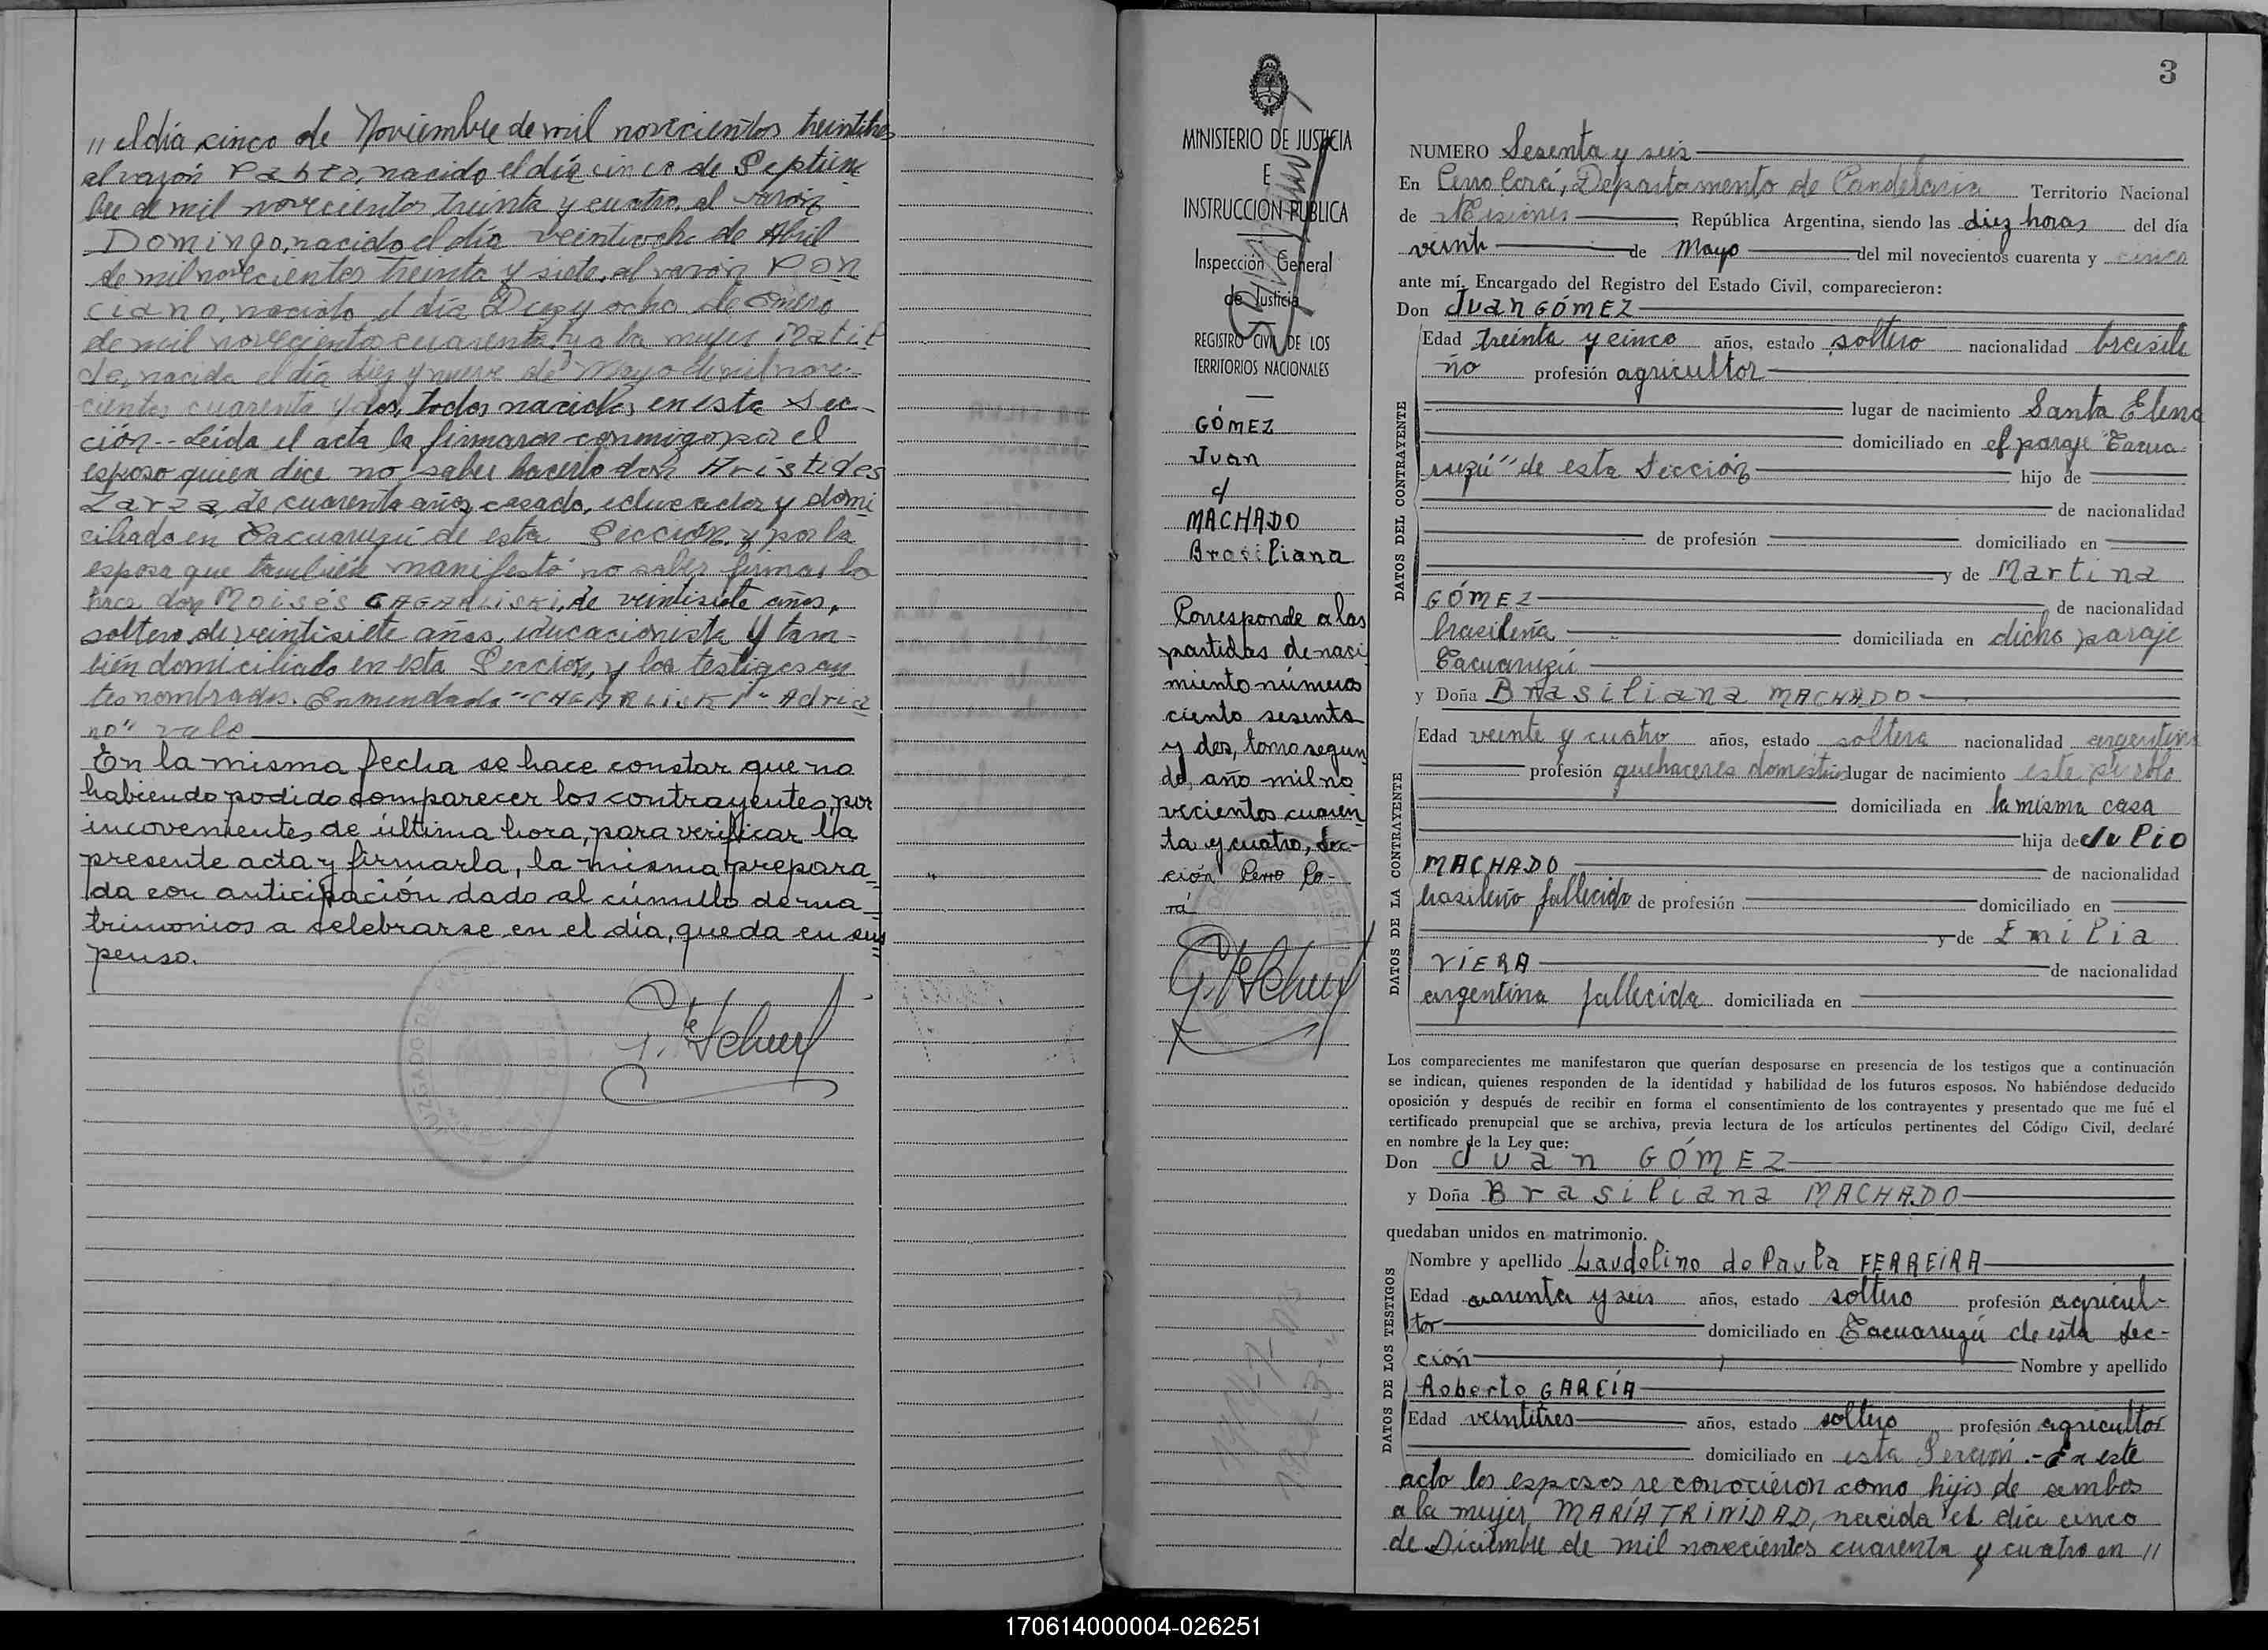 " el día cinco de Noviembre de mil novecientos treintitres
al varón Pablo, nacido el día cinco de Septiem
bre de mil novecientos treinta y cuatro, al varón
Domingo, nacido el día veintiocho de Abril
de mil novecientos treinta y siete, al varón Pon
ciano, nacido el día Diez y ocho de Enero
de mil novecientos cuarenta y a la mujer Matil
de, nacida el día diez y nueve de Mayo de mil nove-
cientos cuarenta y dos, todos nacidos en esta Sec-
ción.- Leída el acta la firmaron conmigo por el
esposo quien dice no saber hacerlo don Aristides
Zarza, de cuarenta años, casado, educador y domi
ciliado en Tacuaruzú de esta Sección, y por la
esposa que también manifestó no saber firmar lo
hace don Moisés de veintisiete años,
soltero de veintisiete años, educacionista y tam-
bién domiciliado en esta Sección, y los testigos an
tes nombrados. Enmendado "CHEARLISKI" "Adria
no" vale
En la misma fecha se hace constar que no
habiendo podido comparecer los contrayentes, por
incovenientes de última hora, para verificar la
presente acta y firmarla, la misma prepara=
da con anticipación dado al cúmullo de ma=
trimonios a celebrarse en el día, queda en sus=
penso.
MINISTERIO DE JUSTICIA
E
INSTRUCCION PUBLICA
Inspección General
de Justicia
REGISTRO CIVIL DE LOS
TERRITORIOS NACIONALES
GÓMEZ
Juan
c/
MACHADO
Brasiliana
Corresponde a las
partidas de naci
miento número
ciento sesenta
y dos, tomo segun
do, año mil no
vecientos cuaren
ta y cuatro, Sec-
ción Cerro Co-
rá
3
NUMERO Sesenta y seis
En Cerro Corá, Departamento de Candelaria Territorio Nacional
de Misiones, República Argentina, siendo las diez horas del día
veinte de Mayo del mil novecientos cuarenta y cinco
ante mí, Encargado del Registro del Estado Civil, comparecieron:
Don Juan GÓMEZ
DATOS DEL CONTRAYENTE
Edad treinta y cinco años, estado soltero nacionalidad brasile
ño profesión agricultor
lugar de nacimiento Santa Elena
domiciliado en el paraje "Tacua-
ruzú" de esta Sección hijo de
de nacionalidad
de profesión domiciliado en
y de Martina
GÓMEZ de nacionalidad
brasileña domiciliada en dicho paraje
Tacuaruzú
y Doña Brasiliana MACHADO
DATOS DE LA CONTRAYENTE
Edad veinte y cuatro años, estado soltera nacionalidad argentina
profesión quehaceres domésticos lugar de nacimiento este pueblo
domiciliada en la misma casa
hija de Julio
MACHADO de nacionalidad
brasileño fallecido de profesión domiciliado en
y de Emilia
VIERA de nacionalidad
argentina fallecida domiciliada en
Los comparecientes me manifestaron que querían desposarse en presencia de los testigos que a continuación
se indican, quienes responden de la identidad y habilidad de los futuros esposos. No habiéndose deducido
oposición y después de recibir en forma el consentimiento de los contrayentes y presentado que me fué el
certificado prenupcial que se archiva, previa lectura de los artículos pertinentes del Código Civil, declaré
en nombre de la Ley que:
Don Juan GÓMEZ
y Doña Brasiliana MACHADO
quedaban unidos en matrimonio.
DATOS DE LOS TESTIGOS
Nombre y apellido Laudelino de Paula FERREIRA
Edad cuarenta y seis años, estado soltero profesión agricul-
tor domiciliado en Tacuaruzú de esta Sec-
ción Nombre y apellido
Roberto GARCÍA
Edad veintitres años, estado soltero profesión agricultor
domiciliado en esta Sección.- En este
acto los esposos reconocieron como hijos de ambos
a la mujer MARÍA TRINIDAD, nacida el día cinco
de Diciembre de mil novecientos cuarenta y cuatro en "
170614000004-026251